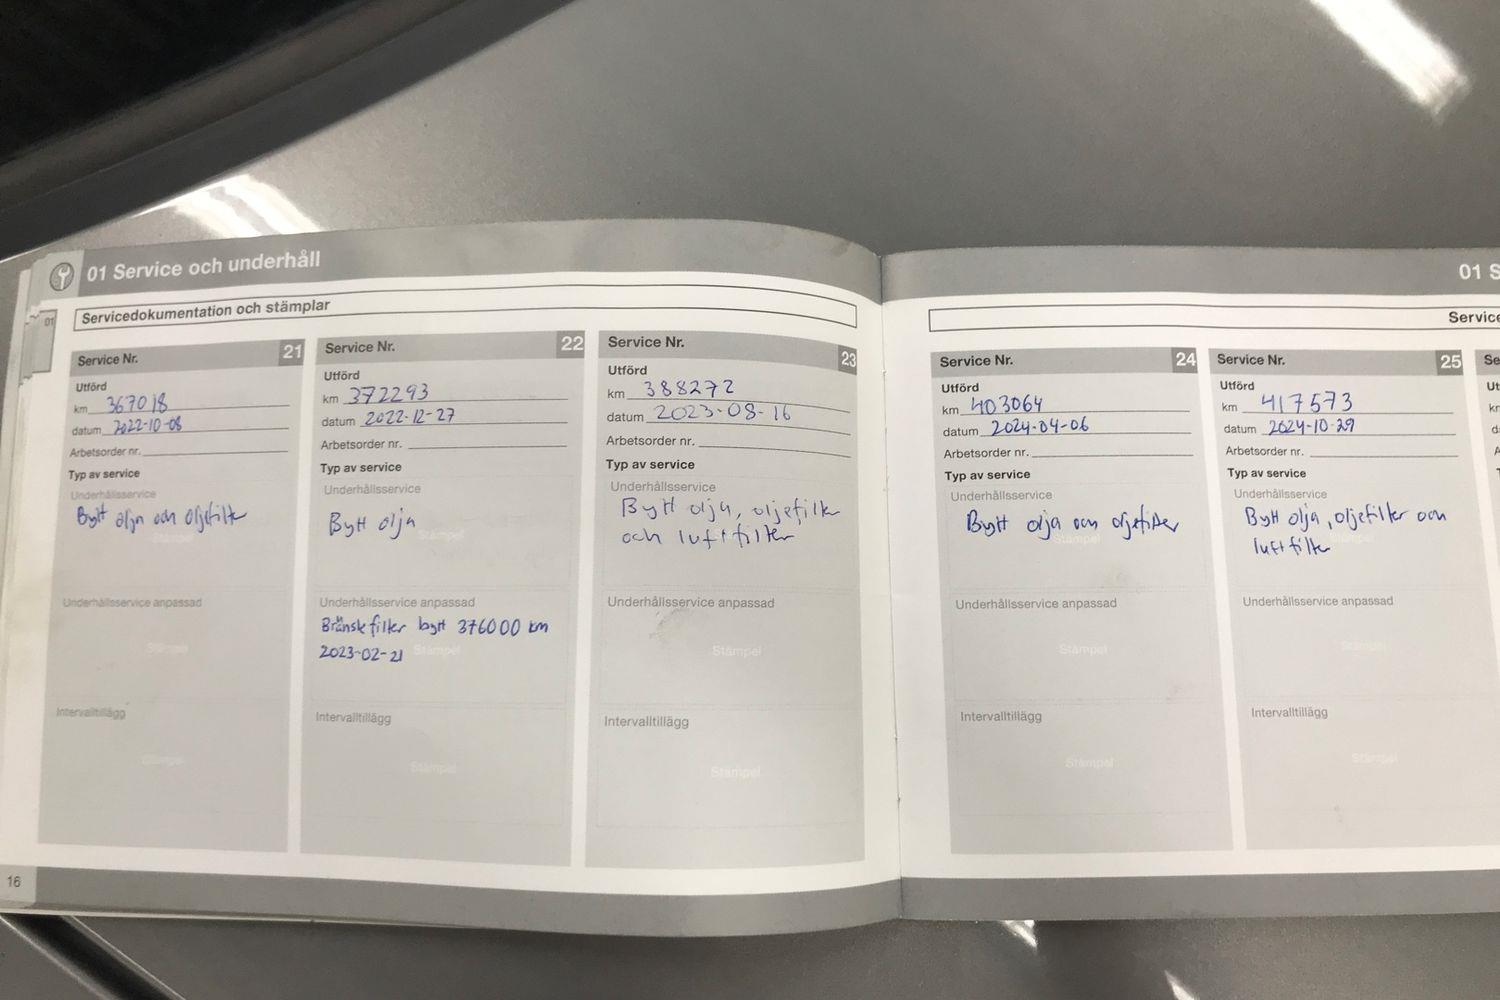 01 Service och underhåll
01
Servicedokumentation och stämplar
Service Nr. 21
Utförd
km 367018
datum 2022-10-08
Arbetsorder nr.
Typ av service
Underhållsservice
Bytt olja och oljefilter
Stämpel
Underhållsservice anpassad
Stämpel
Intervalltillägg
Stämpel
Service Nr. 22
Utförd
km 372293
datum 2022-12-27
Arbetsorder nr.
Typ av service
Underhållsservice
Bytt olja
Stämpel
Underhållsservice anpassad
Bränslefilter bytt 376000 km
2023-02-21
Stämpel
Intervalltillägg
Stämpel
Service Nr. 23
Utförd
km 388272
datum 2023-08-16
Arbetsorder nr.
Typ av service
Underhållsservice
Bytt olja, oljefilter
och luftfilter
Underhållsservice anpassad
Stämpel
Intervalltillägg
Stämpel
16
01 S
Service
Service Nr. 24
Utförd
km 403064
datum 2024-04-06
Arbetsorder nr.
Typ av service
Underhållsservice
Bytt olja och oljefilter
Stämpel
Underhållsservice anpassad
Stämpel
Intervalltillägg
Stämpel
Service Nr. 25
Utförd
km 417573
datum 2024-10-29
Arbetsorder nr.
Typ av service
Underhållsservice
Bytt olja, oljefilter och
luftfilter
Stämpel
Underhållsservice anpassad
Stämpel
Intervalltillägg
Stämpel
Se
Ut